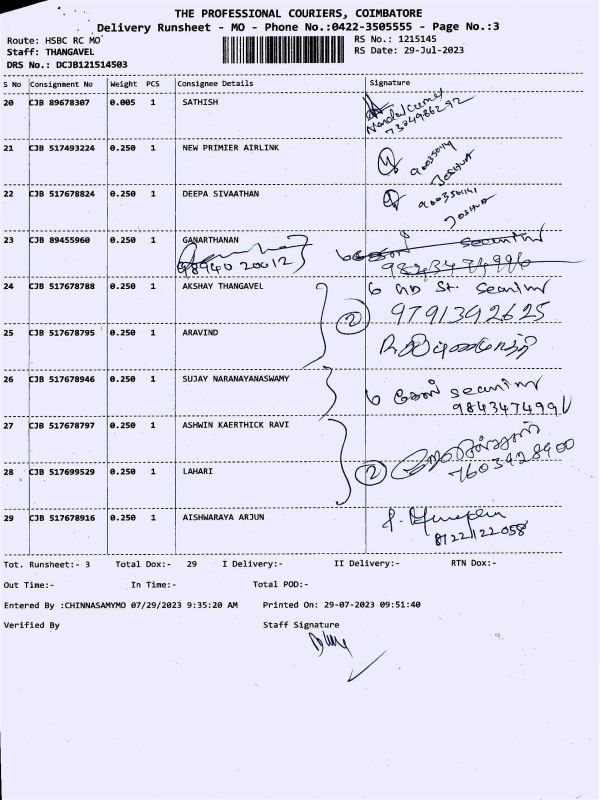 THE PROFESSIONAL COURIERS, COIMBATORE
Delivery Runsheet - MO - Phone No.:0422-3505555 - Page No.:3
Route: HSBC RC MO
RS No.: 1215145
Staff: THANGAVEL
RS Date: 29-Jul-2023
DRS No.: DCJB121514503
S No Consignment No Weight PCS Consignee Details Signature
20 CJB 89678307 0.005 1 SATHISH
7304986292
21 CJB 517493224 0.250 1 NEW PRIMIER AIRLINK
JOSHUA
22 CJB 517678824 0.250 1 DEEPA SIVAATHAN
JOSHUA
23 CJB 89455960 0.250 1 GANARTHANAN
98940 20012
24 CJB 517678788 0.250 1 AKSHAY THANGAVEL
2 9791392625
25 CJB 517678795 0.250 1 ARAVIND
26 CJB 517678946 0.250 1 SUJAY NARANAYANASWAMY
9843474991
27 CJB 517678797 0.250 1 ASHWIN KAERTHICK RAVI
28 CJB 517699529 0.250 1 LAHARI
2 7603928900
29 CJB 517678916 0.250 1 AISHWARAYA ARJUN
8122122058
Tot. Runsheet:- 3 Total Dox:- 29 I Delivery:- II Delivery:- RTN Dox:-
Out Time:- In Time:- Total POD:-
Entered By :CHINNASAMYMO 07/29/2023 9:35:20 AM Printed On: 29-07-2023 09:51:40
Verified By Staff Signature